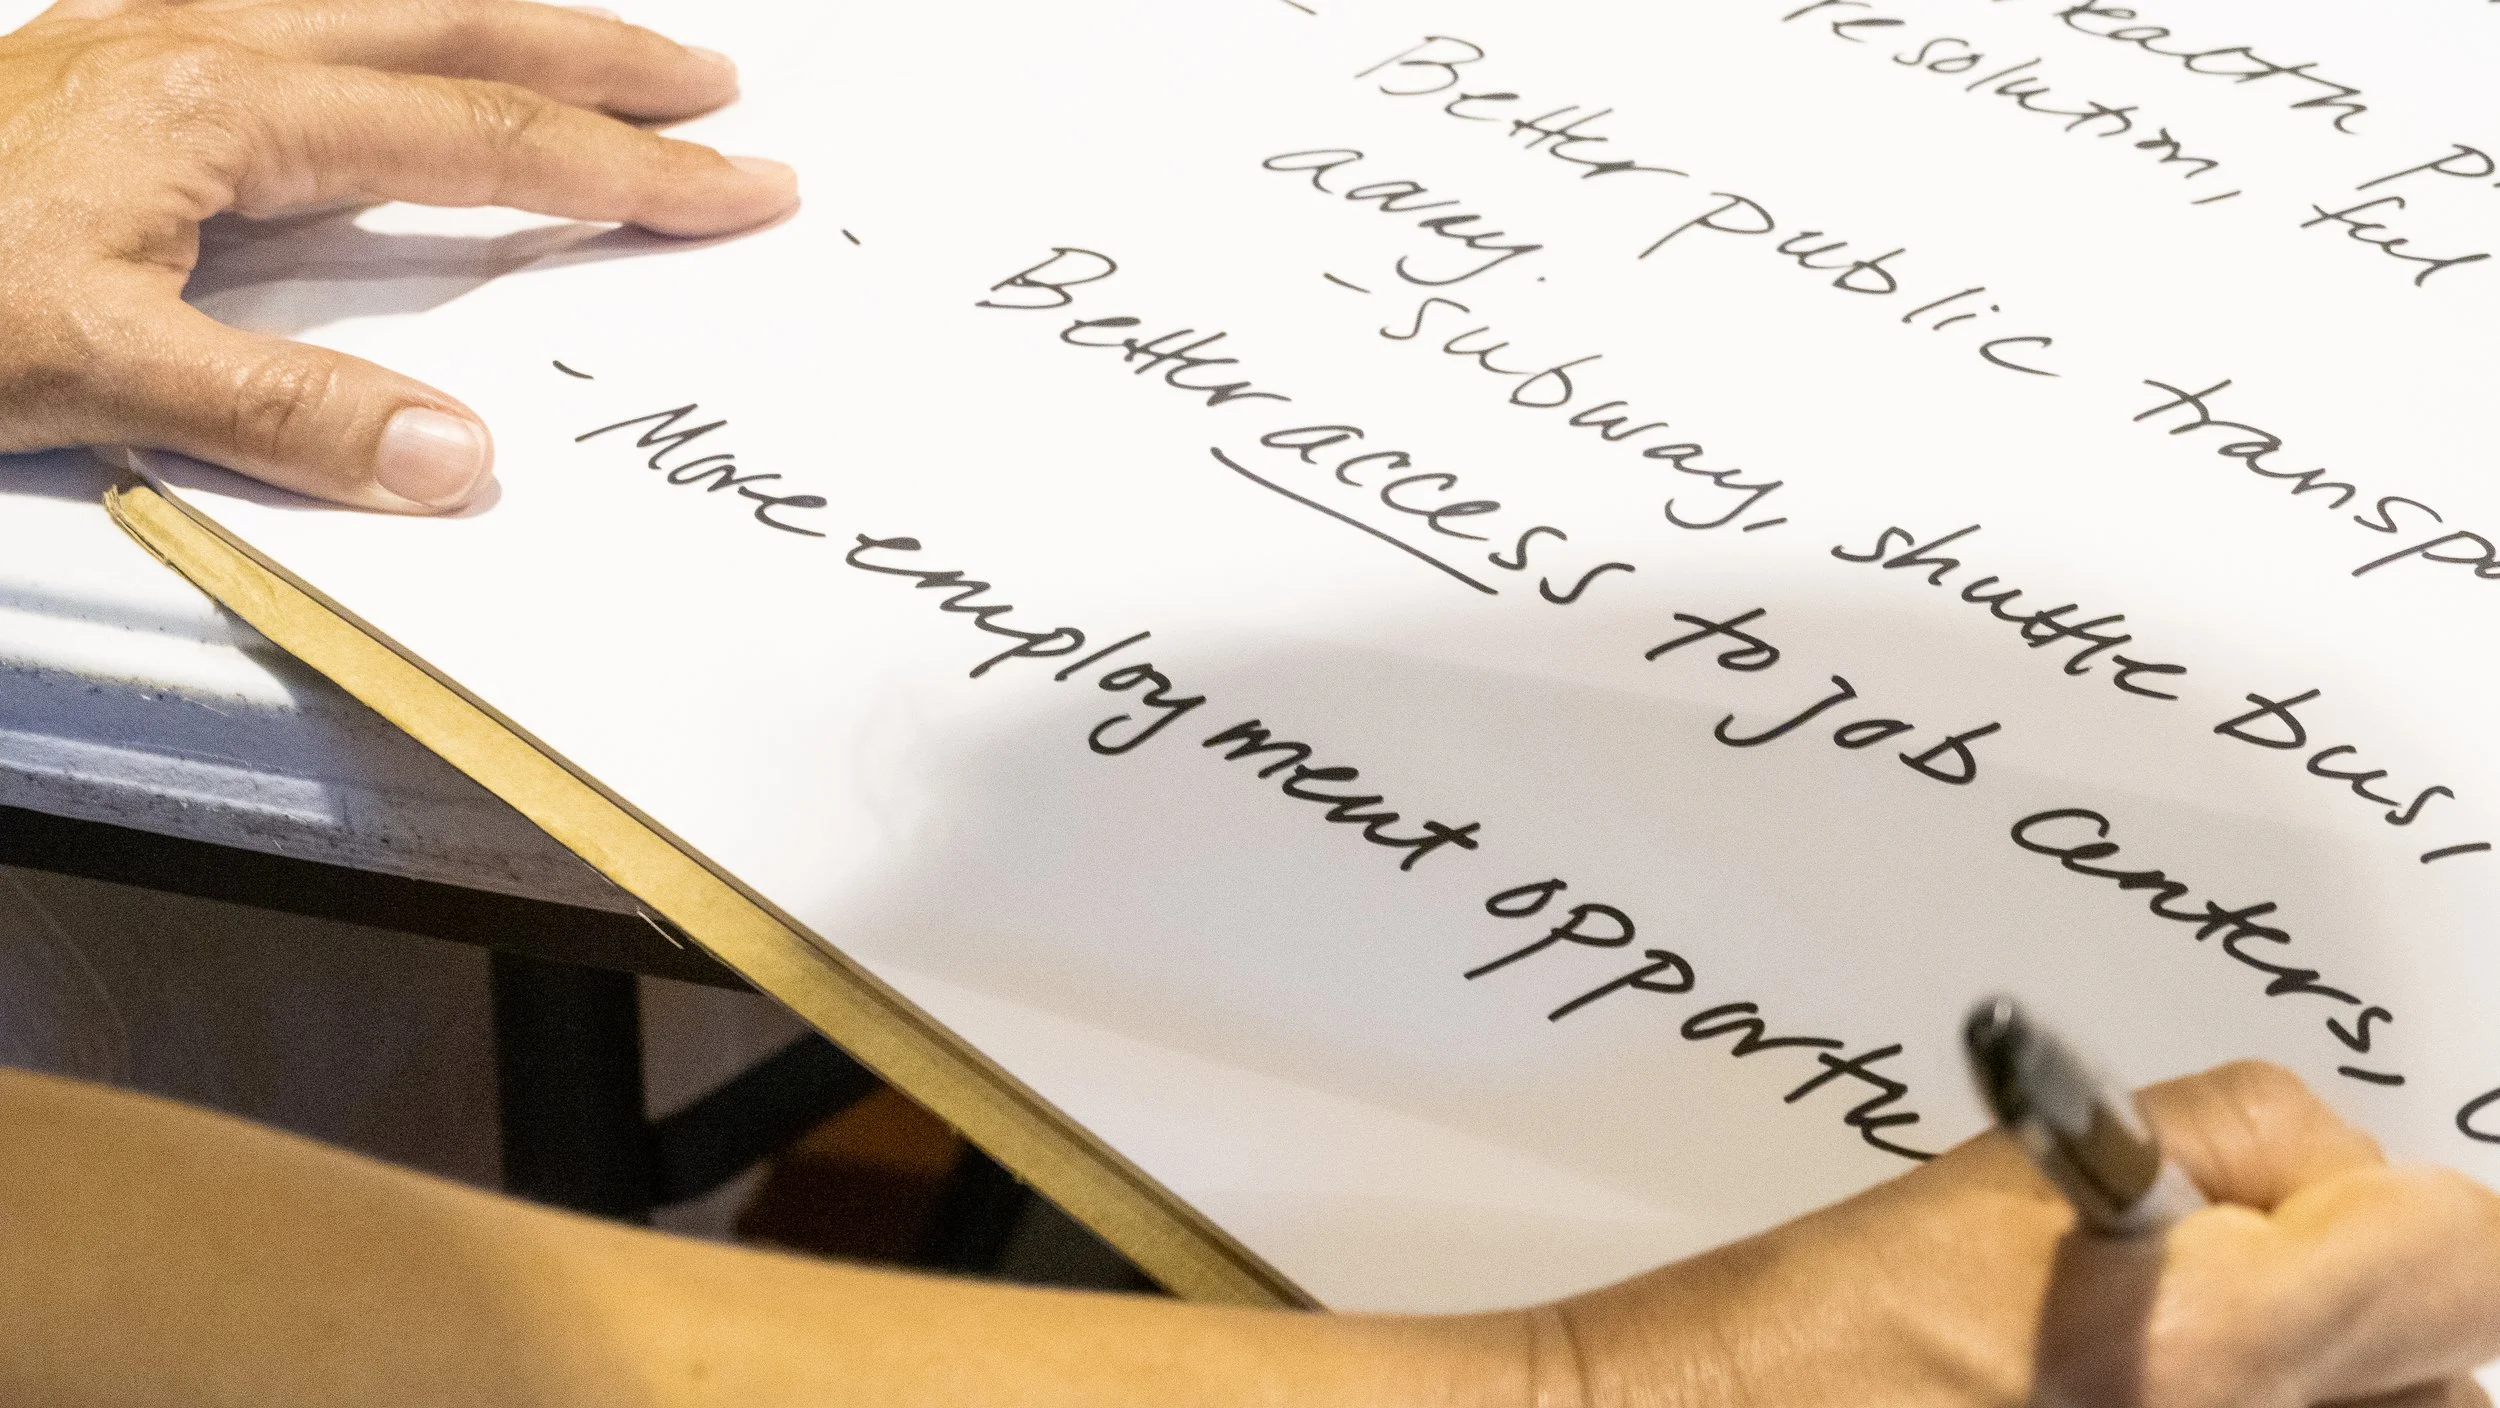 resolution,
- Better public transpo
away.
- subway, shuttle bus,
- Better access to job centers,
- More employment opportu